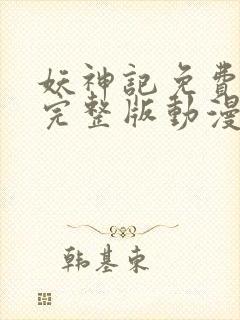 妖神記免費
完整版動漫
韩基東